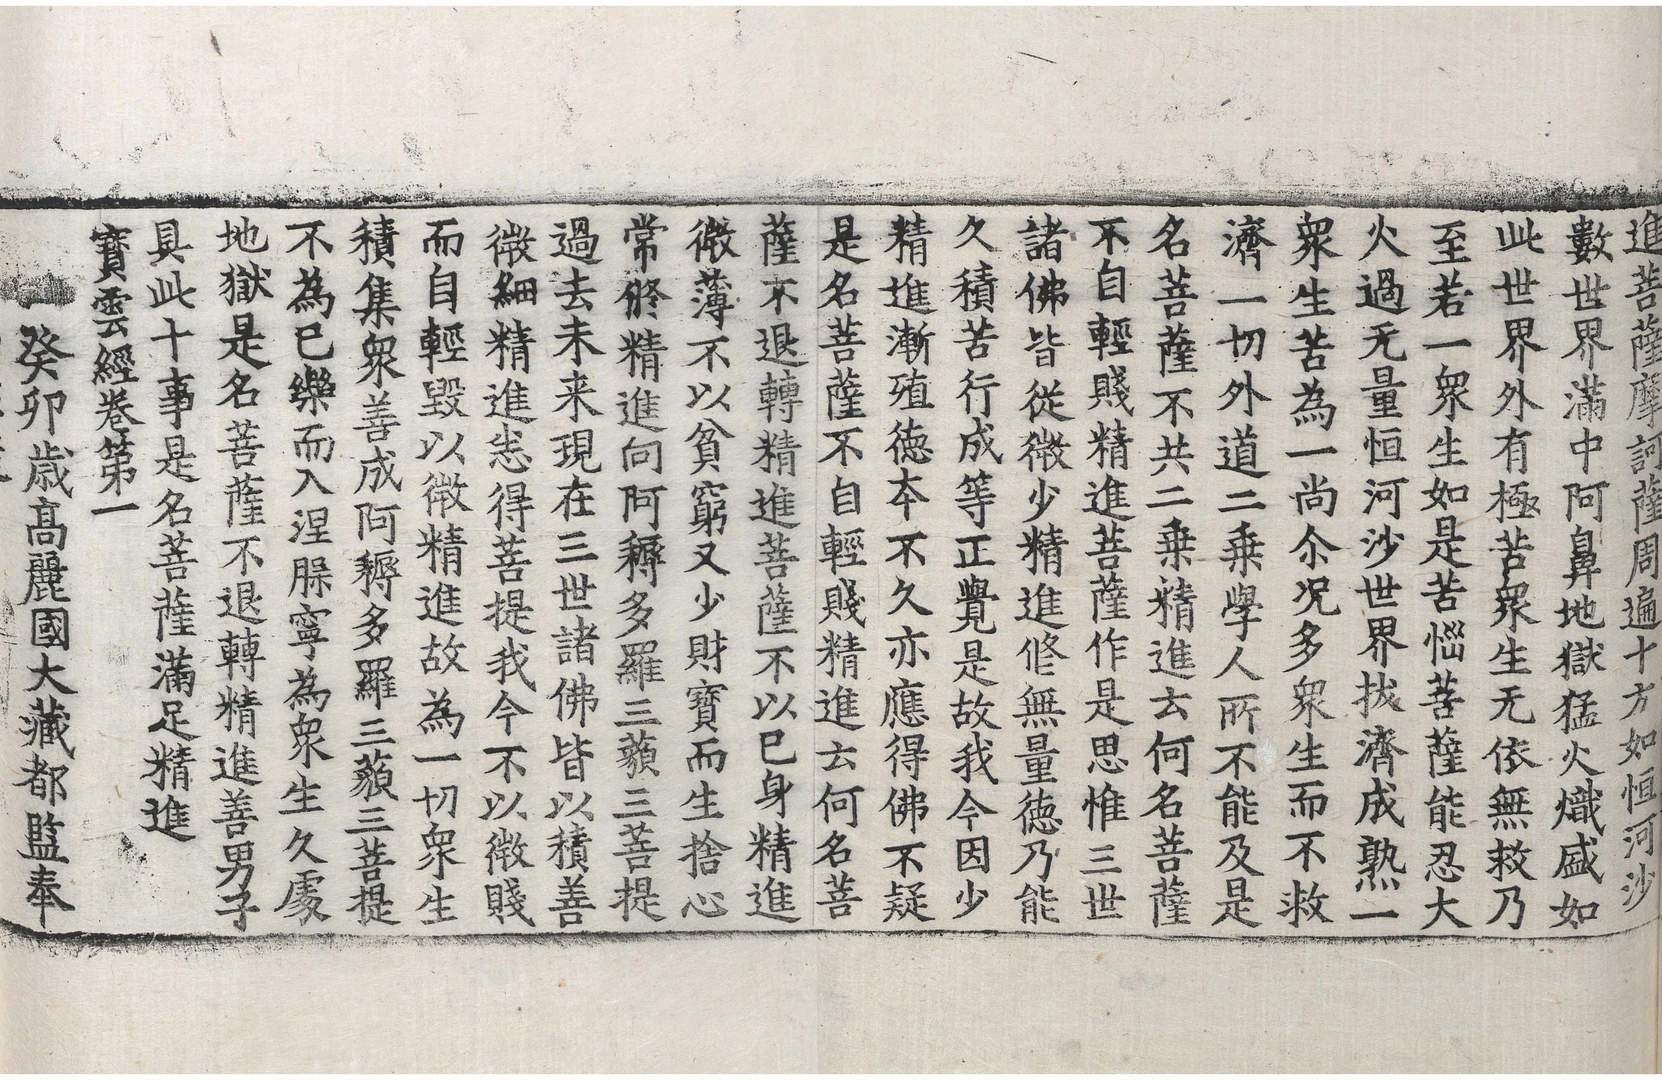 進菩薩摩訶薩周遍十方如恒河沙
數世界滿中阿鼻地獄猛火熾盛如
此世界外有極苦衆生无依無救乃
至若一衆生如是苦惱菩薩能忍大
火過无量恒河沙世界拔濟成熟一
衆生苦為一尚尒况多衆生而不救
濟一切外道二乗學人所不能及是
名菩薩不共二乗精進云何名菩薩
不自輕賤精進菩薩作是思惟三世
諸佛皆從微少精進修無量德乃能
久積苦行成等正覺是故我今因少
精進漸殖德夲不久亦應得佛不疑
是名菩薩不自輕賤精進云何名菩
薩不退轉精進菩薩不以已身精進
微薄不以貧窮又少財寶而生捨心
常修精進向阿耨多羅三藐三菩提
過去未来現在三世諸佛皆以積善
微細精進悉得菩提我今不以微賤
而自輕毀以微精進故為一切衆生
積集衆善成阿耨多羅三藐三菩提
不為已樂而入涅槃寧為衆生久處
地獄是名菩薩不退轉精進善男子
具此十事是名菩薩滿足精進
寶雲經卷第一
癸卯歳高麗國大藏都監奉